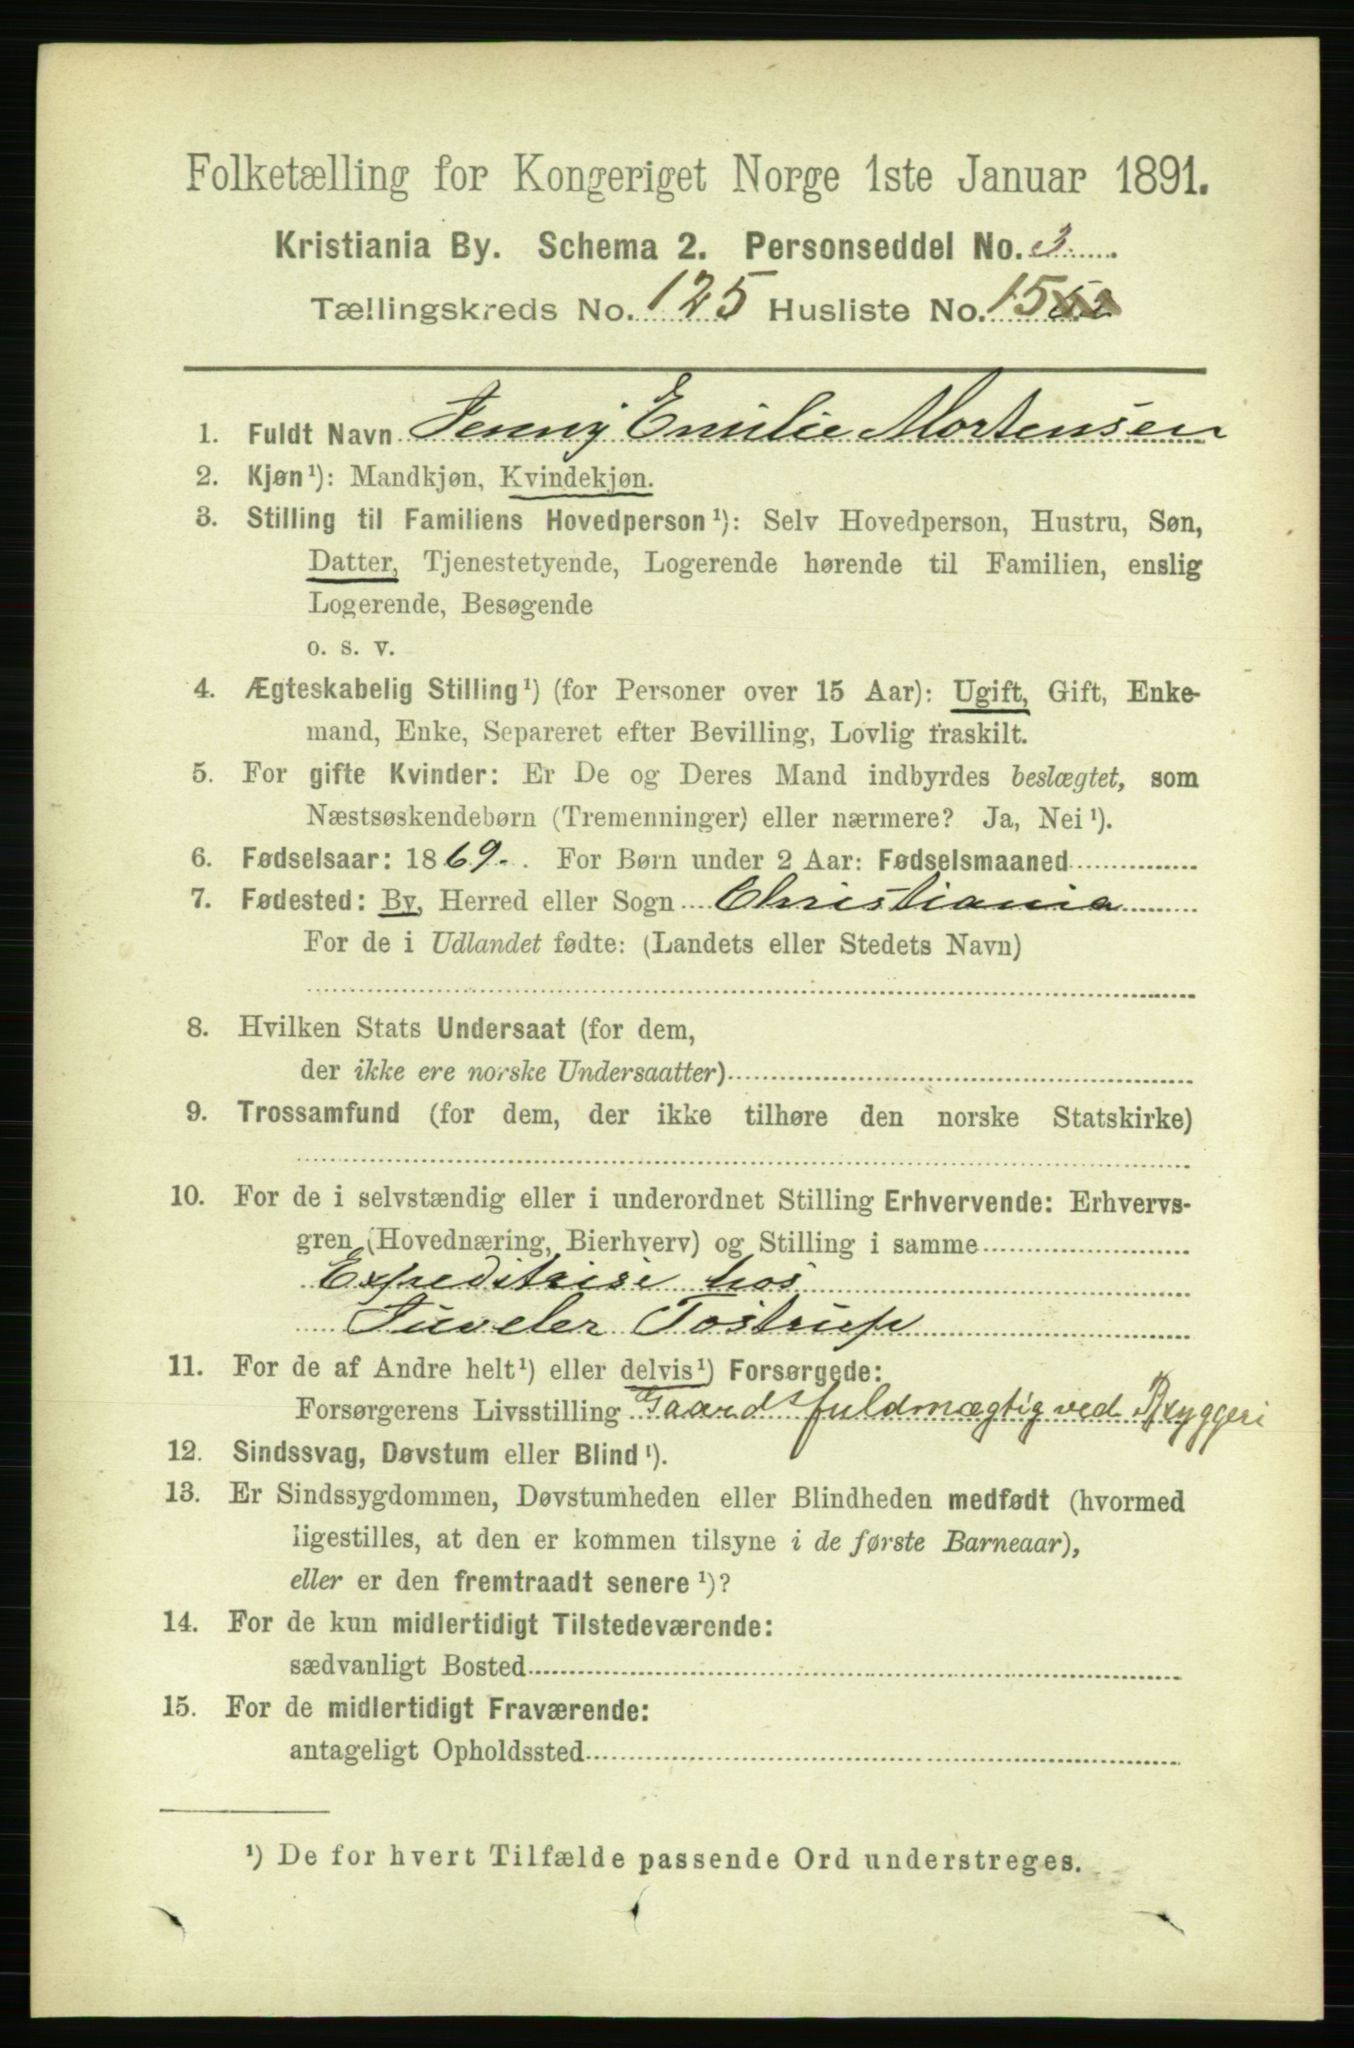 Folketælling for Kongeriget Norge 1ste Januar 1891.
Kristiania By. Schema 2. Personseddel No. 3
Tællingskreds No. 125 Husliste No. 15
1. Fuldt Navn Jenny Emilie Mortensen
2. Kjøn¹): Mandkjøn, Kvindekjøn.
3. Stilling til Familiens Hovedperson¹): Selv Hovedperson, Hustru, Søn,
Datter, Tjenestetyende, Logerende hørende til Familien, enslig
Logerende, Besøgende
o. s. v.
4. Ægteskabelig Stilling¹) (for Personer over 15 Aar): Ugift, Gift, Enke-
mand, Enke, Separeret efter Bevilling, Lovlig fraskilt.
5. For gifte Kvinder: Er De og Deres Mand indbyrdes beslægtet, som
Næstsøskendebørn (Tremenninger) eller nærmere? Ja, Nei¹).
6. Fødselsaar: 1869. For Børn under 2 Aar: Fødselsmaaned
7. Fødested: By, Herred eller Sogn Christiania
For de i Udlandet fødte: (Landets eller Stedets Navn)
8. Hvilken Stats Undersaat (for dem,
der ikke ere norske Undersaatter)
9. Trossamfund (for dem, der ikke tilhøre den norske Statskirke)
10. For de i selvstændig eller i underordnet Stilling Erhvervende: Erhvervs-
gren (Hovednæring, Bierhverv) og Stilling i samme
Expeditrise hos
Juveler Tostrup
11. For de af Andre helt¹) eller delvis¹) Forsørgede:
Forsørgerens Livsstilling Gaardsfuldmægtig ved Bryggeri
12. Sindssvag, Døvstum eller Blind¹).
13. Er Sindssygdommen, Døvstumheden eller Blindheden medfødt (hvormed
ligestilles, at den er kommen tilsyne i de første Barneaar),
eller er den fremtraadt senere¹)?
14. For de kun midlertidigt Tilstedeværende:
sædvanligt Bosted
15. For de midlertidigt Fraværende:
antageligt Opholdssted
¹) De for hvert Tilfælde passende Ord understreges.